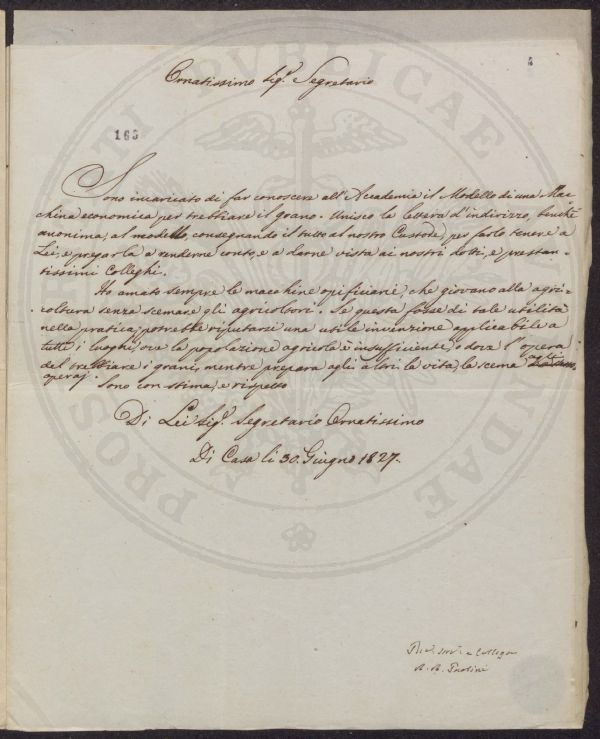 6
Ornatissimo Sigr. Segretario
163
Sono incaricato di far conoscere all'Accademia il Modello di una Mac-
china economica per trebbiare il grano. Unisco la lettera d'indirizzo, benchè
anonima, al modello, consegnando il tutto al nostro Custode, per farlo tenere a
Lei, e pregarla a renderne conto, e a darne vista ai nostri dotti, e prestan-
tissimi Colleghi.
Ho amato sempre le macchine opificiarie, che giovano alla agri-
coltura senza scemare gli agricoltori. Se questa fosse di tale utilità
nella pratica, potrebbe riputarsi una utile invenzione applicabile a
tutti i luoghi, ove la popolazione agricola è insufficiente, o dove l'opera
del trebbiare i grani, mentre prepara agli altri la vita, la scema agli
operaj.
Sono con stima, e rispetto
Di Lei Sigr. Segretario Ornatissimo
Di Casa li 30. Giugno 1827.
Devo. Servo. e Collega
A. R. Paolini
PROSPERITATI PUBLICAE AUGENDAE